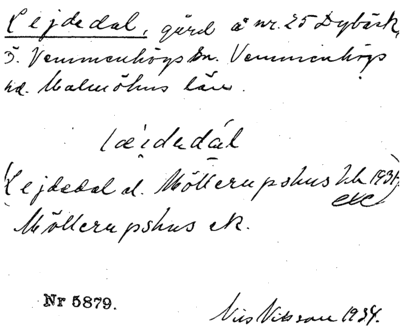 Lejdedal, gård å nr. 25 Dybäck,
Ö. Vemmenhögs sn. Vemmenhögs
hd. Malmöhus län.
læidedál
(Lejdedal el. Möllerupshus Jb 1931)
Möllerupshus ek.
Nr 5879.
Nils Nilsson 1934.